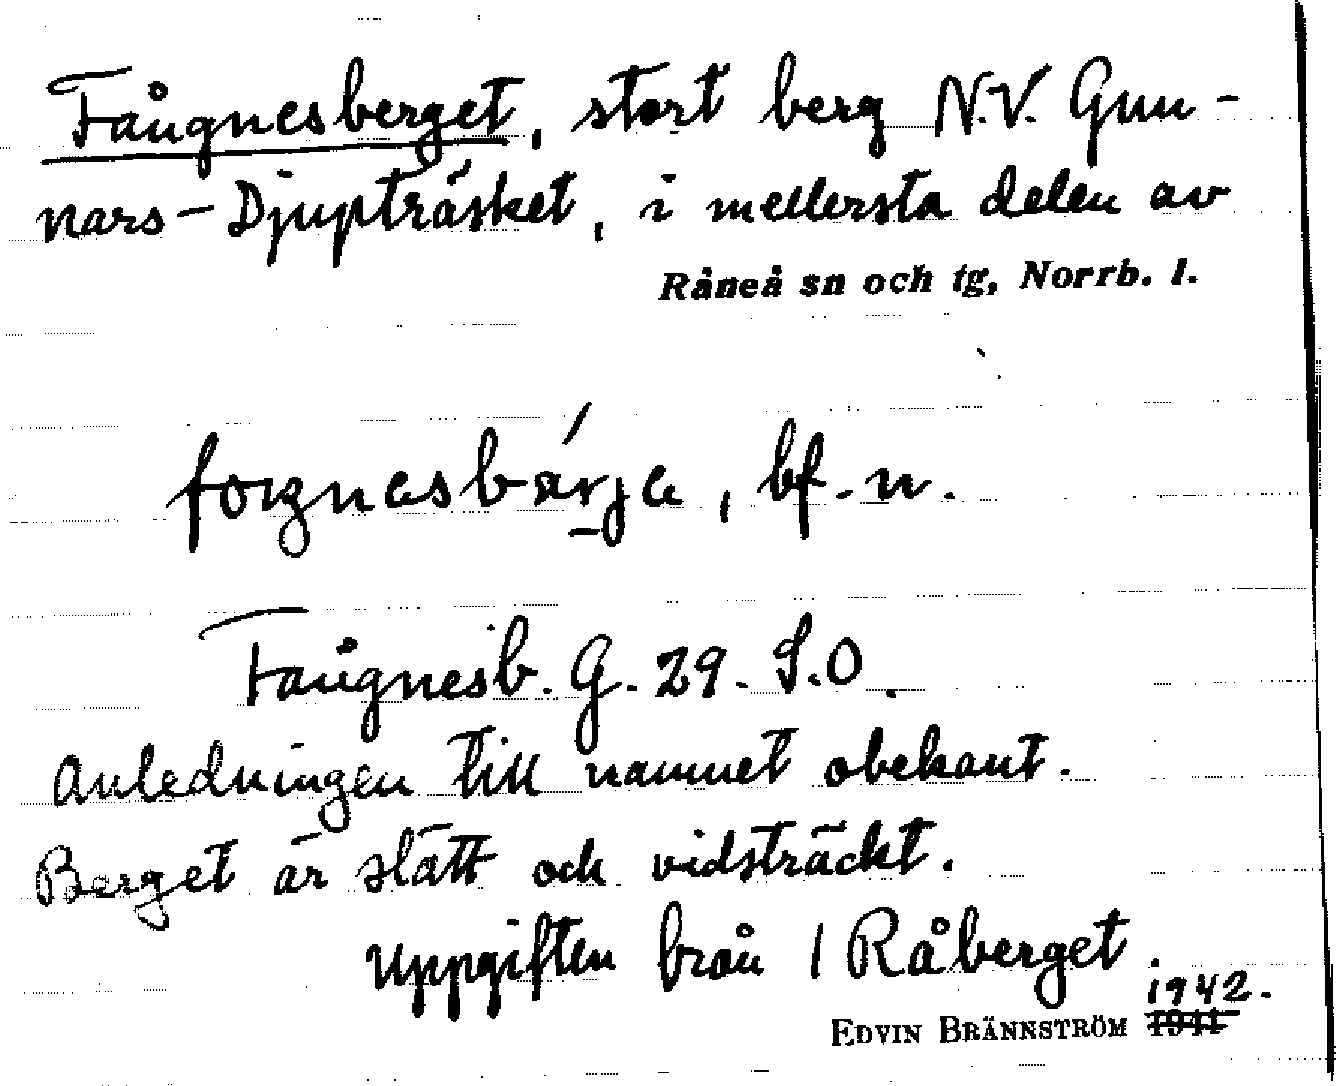 Fångnesberget, stort berg N.V. Gun-
nars-Djupträsket, i mellersta delen av
Råneå sn och tg, Norrb. l.
bf. n.
Fångnesb. G. 29. S.O.
Anledningen till namnet obekant.
Berget är slätt och vidsträckt.
Uppgiften från 1 Råberget.
1942.
EDVIN BRÄNNSTRÖM 1941